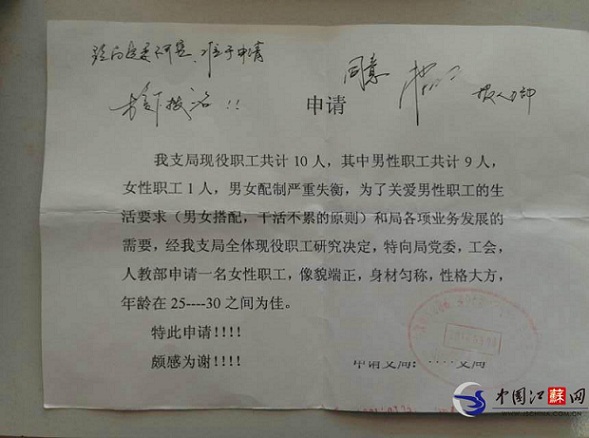 同意
申请
我支局现役职工共计10人，其中男性职工共计9人，
女性职工1人，男女配制严重失衡，为了关爱男性职工的生
活要求（男女搭配，干活不累的原则）和局各项业务发展的
需要，经我支局全体现役职工研究决定，特向局党委，工会，
人教部申请一名女性职工，像貌端正，身材匀称，性格大方，
年龄在25----30之间为佳。
特此申请!!!!
颇感为谢!!!!
申请支局：····支局
中国江苏网